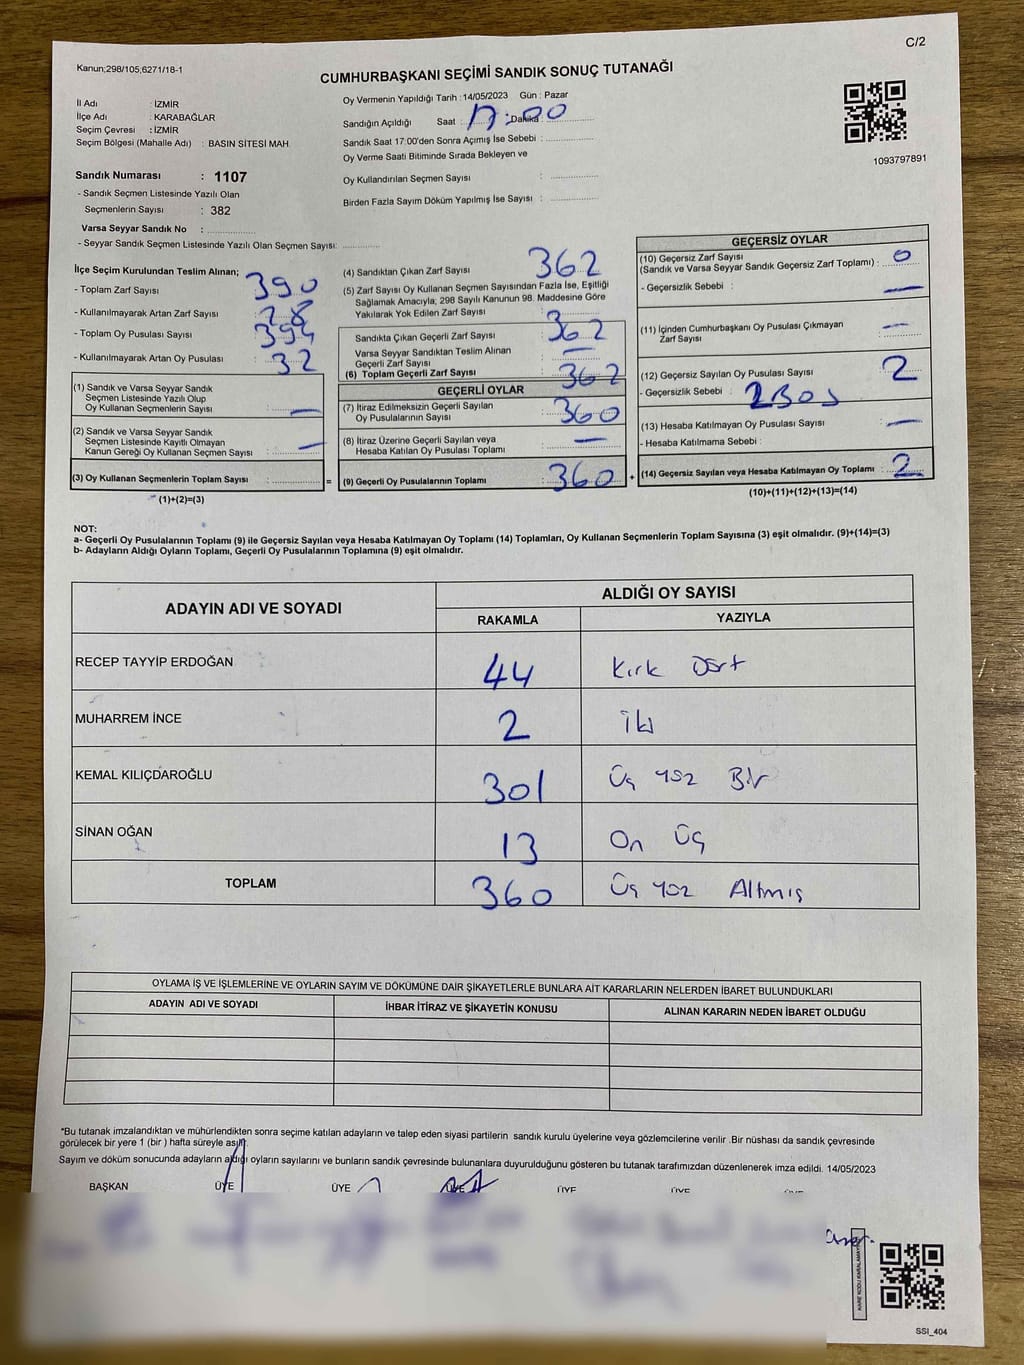 C/2
Kanun;298/105,6271/18-1
CUMHURBAŞKANI SEÇİMİ SANDIK SONUÇ TUTANAĞI
İl Adı : İZMİR
İlçe Adı : KARABAĞLAR
Seçim Çevresi : İZMİR
Seçim Bölgesi (Mahalle Adı) : BASIN SİTESİ MAH
Sandık Numarası : 1107
- Sandık Seçmen Listesinde Yazılı Olan
Seçmenlerin Sayısı : 382
Varsa Seyyar Sandık No :
- Seyyar Sandık Seçmen Listesinde Yazılı Olan Seçmen Sayısı:
Oy Vermenin Yapıldığı Tarih : 14/05/2023 Gün : Pazar
Sandığın Açıldığı Saat : 17:00 Dakika
Sandık Saat 17:00'den Sonra Açımış İse Sebebi :
Oy Verme Saati Bitiminde Sırada Bekleyen ve
Oy Kullandırılan Seçmen Sayısı :
Birden Fazla Sayım Döküm Yapılmış İse Sayısı :
1093797891
İlçe Seçim Kurulundan Teslim Alınan;
- Toplam Zarf Sayısı : 390
- Kullanılmayarak Artan Zarf Sayısı : 28
- Toplam Oy Pusulası Sayısı : 394
- Kullanılmayarak Artan Oy Pusulası : 32
(1) Sandık ve Varsa Seyyar Sandık
Seçmen Listesinde Yazılı Olup
Oy Kullanan Seçmenlerin Sayısı : —
(2) Sandık ve Varsa Seyyar Sandık
Seçmen Listesinde Kayıtlı Olmayan
Kanun Gereği Oy Kullanan Seçmen Sayısı : —
(3) Oy Kullanan Seçmenlerin Toplam Sayısı : =
(1)+(2)=(3)
(4) Sandıktan Çıkan Zarf Sayısı : 362
(5) Zarf Sayısı Oy Kullanan Seçmen Sayısından Fazla İse, Eşitliği
Sağlamak Amacıyla; 298 Sayılı Kanunun 98. Maddesine Göre
Yakılarak Yok Edilen Zarf Sayısı :
Sandıkta Çıkan Geçerli Zarf Sayısı : 362
Varsa Seyyar Sandıktan Teslim Alınan
Geçerli Zarf Sayısı : —
(6) Toplam Geçerli Zarf Sayısı : 362
GEÇERLİ OYLAR
(7) İtiraz Edilmeksizin Geçerli Sayılan
Oy Pusulalarının Sayısı : 360
(8) İtiraz Üzerine Geçerli Sayılan veya
Hesaba Katılan Oy Pusulası Toplamı : —
(9) Geçerli Oy Pusulalarının Toplamı : 360 +
GEÇERSİZ OYLAR
(10) Geçersiz Zarf Sayısı
(Sandık ve Varsa Seyyar Sandık Geçersiz Zarf Toplamı) : 0
- Geçersizlik Sebebi : —
(11) İçinden Cumhurbaşkanı Oy Pusulası Çıkmayan
Zarf Sayısı : —
(12) Geçersiz Sayılan Oy Pusulası Sayısı : 2
- Geçersizlik Sebebi : 2 Boş
(13) Hesaba Katılmayan Oy Pusulası Sayısı : —
- Hesaba Katılmama Sebebi :
(14) Geçersiz Sayılan veya Hesaba Katılmayan Oy Toplamı : 2
(10)+(11)+(12)+(13)=(14)
NOT:
a- Geçerli Oy Pusulalarının Toplamı (9) ile Geçersiz Sayılan veya Hesaba Katılmayan Oy Toplamı (14) Toplamları, Oy Kullanan Seçmenlerin Toplam Sayısına (3) eşit olmalıdır. (9)+(14)=(3)
b- Adayların Aldığı Oyların Toplamı, Geçerli Oy Pusulalarının Toplamına (9) eşit olmalıdır.
ADAYIN ADI VE SOYADI
ALDIĞI OY SAYISI
RAKAMLA YAZIYLA
RECEP TAYYİP ERDOĞAN 44 Kırk Dört
MUHARREM İNCE 2 İki
KEMAL KILIÇDAROĞLU 301 Üç yüz Bir
SİNAN OĞAN 13 On Üç
TOPLAM 360 Üç yüz Altmış
OYLAMA İŞ VE İŞLEMLERİNE VE OYLARIN SAYIM VE DÖKÜMÜNE DAİR ŞİKAYETLERLE BUNLARA AİT KARARLARIN NELERDEN İBARET BULUNDUKLARI
ADAYIN ADI VE SOYADI İHBAR İTİRAZ VE ŞİKAYETİN KONUSU ALINAN KARARIN NEDEN İBARET OLDUĞU
*Bu tutanak imzalandıktan ve mühürlendikten sonra seçime katılan adayların ve talep eden siyasi partilerin sandık kurulu üyelerine veya gözlemcilerine verilir .Bir nüshası da sandık çevresinde
görülecek bir yere 1 (bir ) hafta süreyle asılır.
Sayım ve döküm sonucunda adayların aldığı oyların sayılarını ve bunların sandık çevresinde bulunanlara duyurulduğunu gösteren bu tutanak tarafımızdan düzenlenerek imza edildi. 14/05/2023
BAŞKAN ÜYE ÜYE ÜYE ÜYE ÜYE ÜYE
KARE KODU KARALAMAYINIZ
SSI_404